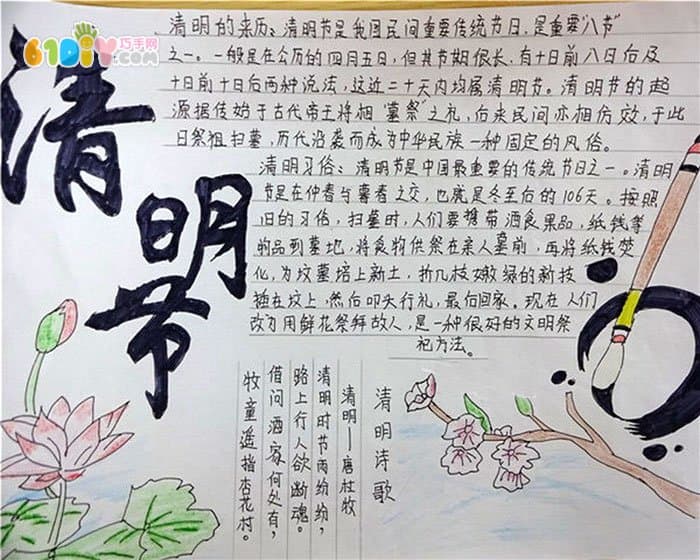 61DIY巧手网
清明节
清明的来历：清明节是我国民间重要传统节日，是重要"八节"
之一。一般是在公历的四月五日，但其节期很长，有十日前八日后及
十日前十日后两种说法，这近二十天内均属清明节。清明节的起
源据传始于古代帝王将相"墓祭"之礼，后来民间亦相仿效，于此
日祭祖扫墓，历代沿袭而成为中华民族一种固定的风俗。
清明习俗：清明节是中国最重要的传统节日之一。清明
节是在仲春与暮春之交，也就是冬至后的106天。按照
旧的习俗，扫墓时，人们要携带酒食果品，纸钱等
物品到墓地，将食物供祭在亲人墓前，再将纸钱焚
化，为坟墓培上新土，折几枝嫩绿的新枝
插在坟上，然后叩头行礼，最后回家。现在人们
改为用鲜花祭拜故人，是一种很好的文明祭
祀方法。
清明诗歌
清明—唐杜牧
清明时节雨纷纷，
路上行人欲断魂。
借问酒家何处有，
牧童遥指杏花村。